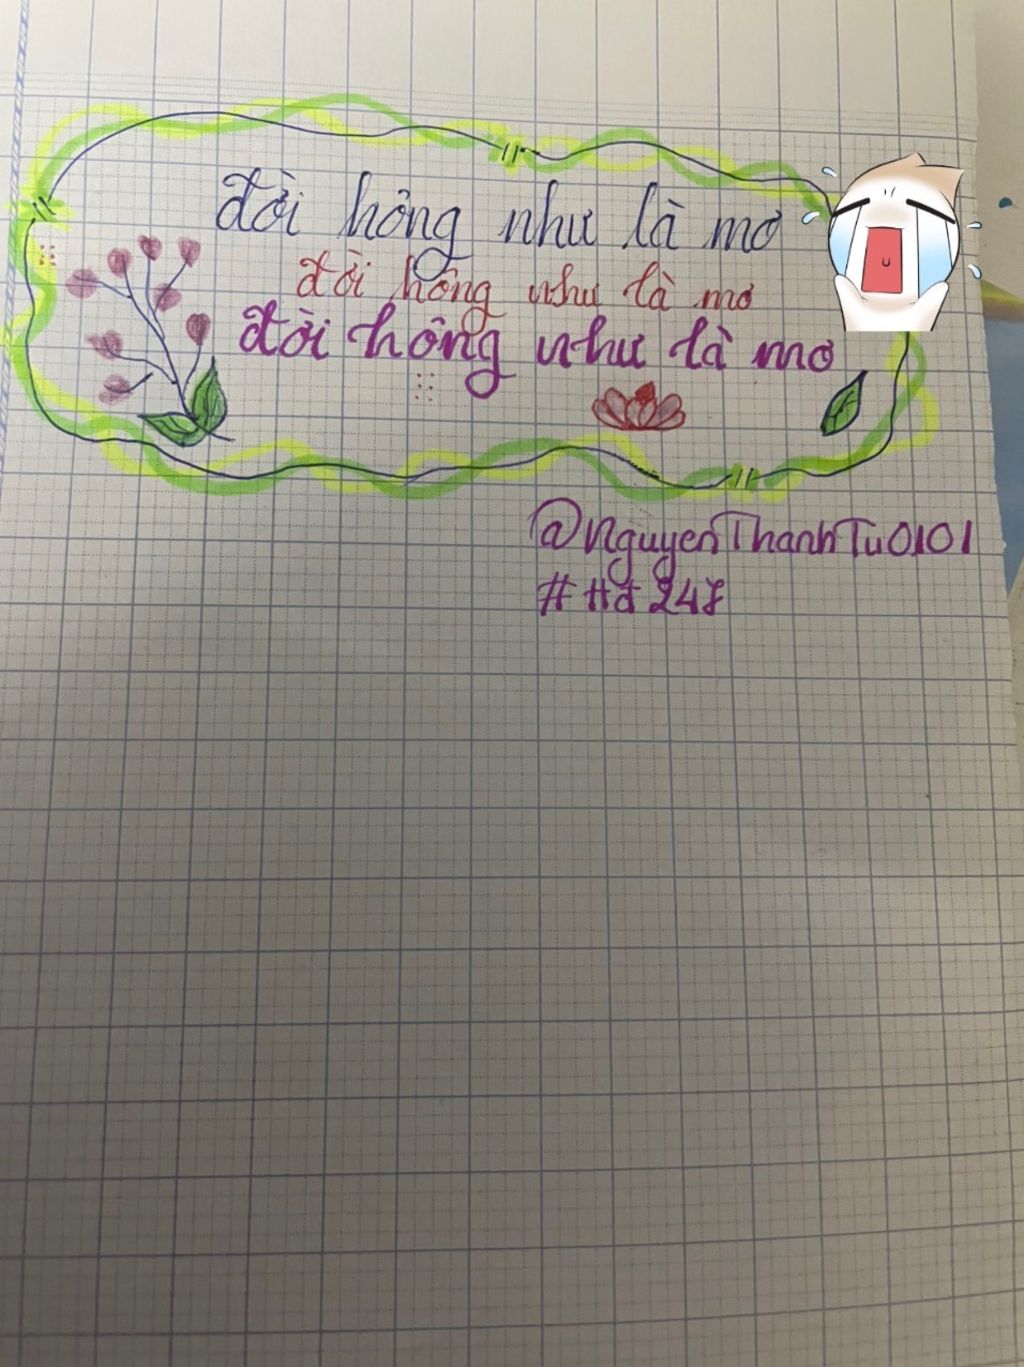 đời hổng như là mơ
đời hông như là mơ
đời hông như là mơ
@NguyenThanhTu0101
#Hd247